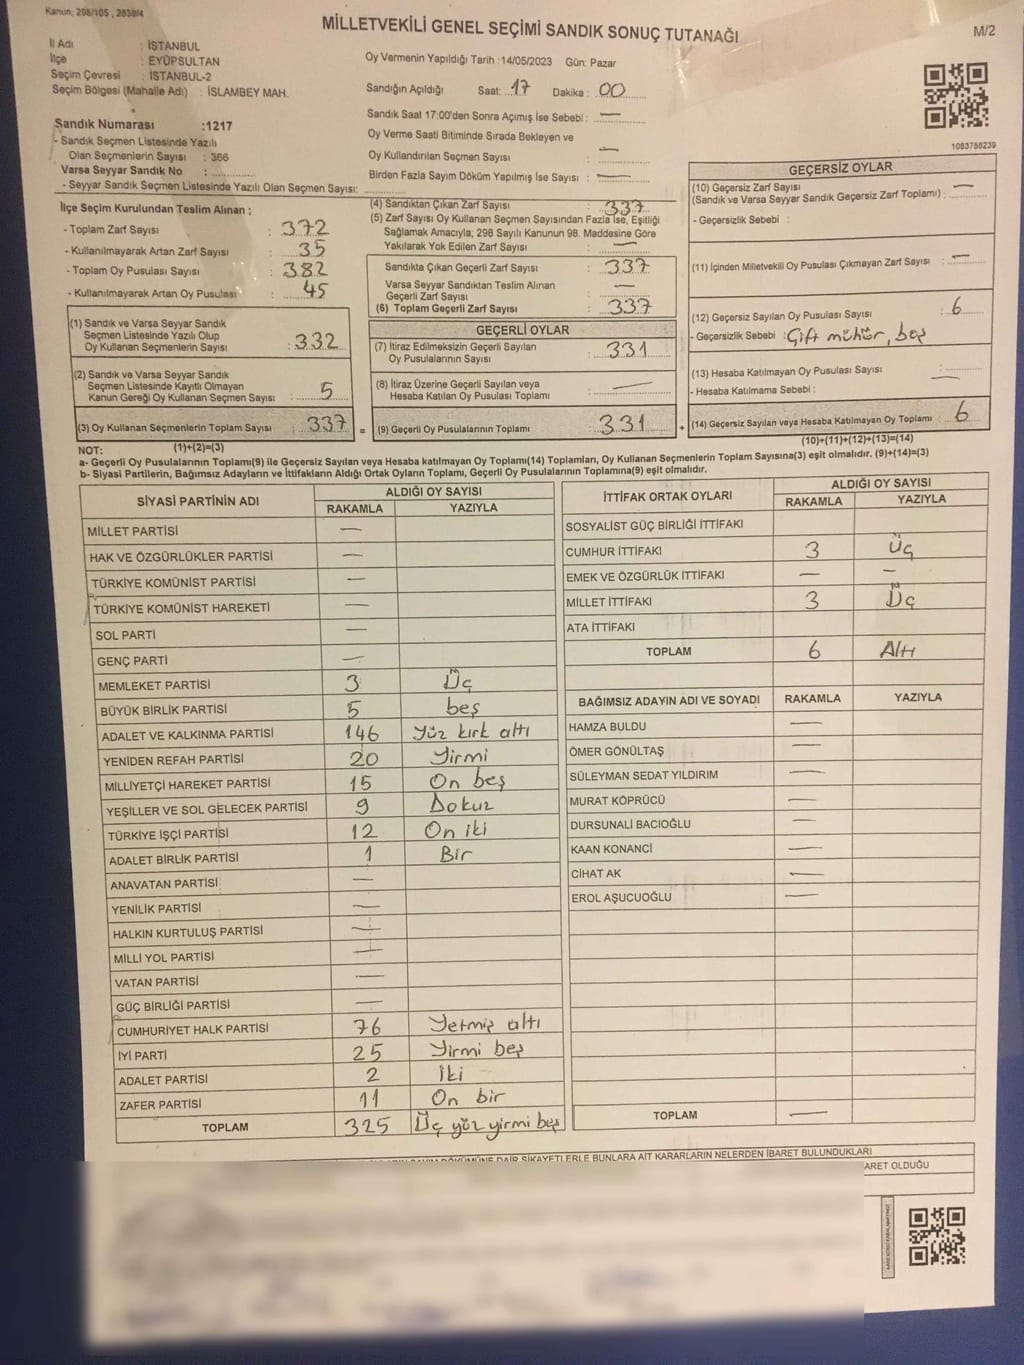 Kanun: 298/105 , 2839/4
MİLLETVEKİLİ GENEL SEÇİMİ SANDIK SONUÇ TUTANAĞI
M/2
İl Adı : İSTANBUL
İlçe : EYÜPSULTAN
Seçim Çevresi : İSTANBUL-2
Seçim Bölgesi (Mahalle Adı) : İSLAMBEY MAH.
Sandık Numarası :1217
- Sandık Seçmen Listesinde Yazılı
Olan Seçmenlerin Sayısı : 366
Varsa Seyyar Sandık No :
- Seyyar Sandık Seçmen Listesinde Yazılı Olan Seçmen Sayısı:
Oy Vermenin Yapıldığı Tarih :14/05/2023 Gün: Pazar
Sandığın Açıldığı Saat: 17 Dakika : 00
Sandık Saat 17:00'den Sonra Açımış İse Sebebi : —
Oy Verme Saati Bitiminde Sırada Bekleyen ve
Oy Kullandırılan Seçmen Sayısı : —
Birden Fazla Sayım Döküm Yapılmış İse Sayısı : —
1083780239
İlçe Seçim Kurulundan Teslim Alınan ;
- Toplam Zarf Sayısı : 372
- Kullanılmayarak Artan Zarf Sayısı : 35
- Toplam Oy Pusulası Sayısı : 382
- Kullanılmayarak Artan Oy Pusulası : 45
(1) Sandık ve Varsa Seyyar Sandık
Seçmen Listesinde Yazılı Olup
Oy Kullanan Seçmenlerin Sayısı : 332
(2) Sandık ve Varsa Seyyar Sandık
Seçmen Listesinde Kayıtlı Olmayan
Kanun Gereği Oy Kullanan Seçmen Sayısı : 5
(3) Oy Kullanan Seçmenlerin Toplam Sayısı : 337
(1)+(2)=(3)
(4) Sandıktan Çıkan Zarf Sayısı : 337
(5) Zarf Sayısı Oy Kullanan Seçmen Sayısından Fazla İse, Eşitliği
Sağlamak Amacıyla; 298 Sayılı Kanunun 98. Maddesine Göre
Yakılarak Yok Edilen Zarf Sayısı : —
Sandıkta Çıkan Geçerli Zarf Sayısı : 337
Varsa Seyyar Sandıktan Teslim Alınan
Geçerli Zarf Sayısı : —
(6) Toplam Geçerli Zarf Sayısı : 337
GEÇERLİ OYLAR
(7) İtiraz Edilmeksizin Geçerli Sayılan
Oy Pusulalarının Sayısı : 331
(8) İtiraz Üzerine Geçerli Sayılan veya
Hesaba Katılan Oy Pusulası Toplamı : —
= (9) Geçerli Oy Pusulalarının Toplamı : 331 +
GEÇERSİZ OYLAR
(10) Geçersiz Zarf Sayısı
(Sandık ve Varsa Seyyar Sandık Geçersiz Zarf Toplamı) : —
- Geçersizlik Sebebi :
(11) İçinden Milletvekili Oy Pusulası Çıkmayan Zarf Sayısı : —
(12) Geçersiz Sayılan Oy Pusulası Sayısı : 6
- Geçersizlik Sebebi : Çift mühür, boş
(13) Hesaba Katılmayan Oy Pusulası Sayısı : —
- Hesaba Katılmama Sebebi :
(14) Geçersiz Sayılan veya Hesaba Katılmayan Oy Toplamı : 6
(10)+(11)+(12)+(13)=(14)
NOT:
a- Geçerli Oy Pusulalarının Toplamı(9) ile Geçersiz Sayılan veya Hesaba katılmayan Oy Toplamı(14) Toplamları, Oy Kullanan Seçmenlerin Toplam Sayısına(3) eşit olmalıdır. (9)+(14)=(3)
b- Siyasi Partilerin, Bağımsız Adayların ve İttifakların Aldığı Ortak Oyların Toplamı, Geçerli Oy Pusulalarının Toplamına(9) eşit olmalıdır.
SİYASİ PARTİNİN ADI
ALDIĞI OY SAYISI
RAKAMLA YAZIYLA
MİLLET PARTİSİ —
HAK VE ÖZGÜRLÜKLER PARTİSİ —
TÜRKİYE KOMÜNİST PARTİSİ —
TÜRKİYE KOMÜNİST HAREKETİ —
SOL PARTİ —
GENÇ PARTİ —
MEMLEKET PARTİSİ 3 Üç
BÜYÜK BİRLİK PARTİSİ 5 beş
ADALET VE KALKINMA PARTİSİ 146 Yüz kırk altı
YENİDEN REFAH PARTİSİ 20 Yirmi
MİLLİYETÇİ HAREKET PARTİSİ 15 On beş
YEŞİLLER VE SOL GELECEK PARTİSİ 9 Dokuz
TÜRKİYE İŞÇİ PARTİSİ 12 On iki
ADALET BİRLİK PARTİSİ 1 Bir
ANAVATAN PARTİSİ —
YENİLİK PARTİSİ —
HALKIN KURTULUŞ PARTİSİ —
MİLLİ YOL PARTİSİ —
VATAN PARTİSİ —
GÜÇ BİRLİĞİ PARTİSİ —
CUMHURİYET HALK PARTİSİ 76 Yetmiş altı
İYİ PARTİ 25 Yirmi beş
ADALET PARTİSİ 2 İki
ZAFER PARTİSİ 11 On bir
TOPLAM 325 Üç yüz yirmi beş
İTTİFAK ORTAK OYLARI
ALDIĞI OY SAYISI
RAKAMLA YAZIYLA
SOSYALİST GÜÇ BİRLİĞİ İTTİFAKI
CUMHUR İTTİFAKI 3 Üç
EMEK VE ÖZGÜRLÜK İTTİFAKI — —
MİLLET İTTİFAKI 3 Üç
ATA İTTİFAKI
TOPLAM 6 Altı
BAĞIMSIZ ADAYIN ADI VE SOYADI RAKAMLA YAZIYLA
HAMZA BULDU —
ÖMER GÖNÜLTAŞ —
SÜLEYMAN SEDAT YILDIRIM —
MURAT KÖPRÜCÜ —
DURSUNALİ BACIOĞLU —
KAAN KONANCİ —
CİHAT AK —
EROL AŞUCUOĞLU —
TOPLAM —
DAİR ŞİKAYETLERLE BUNLARA AİT KARARLARIN NELERDEN İBARET BULUNDUKLARI
ARET OLDUĞU